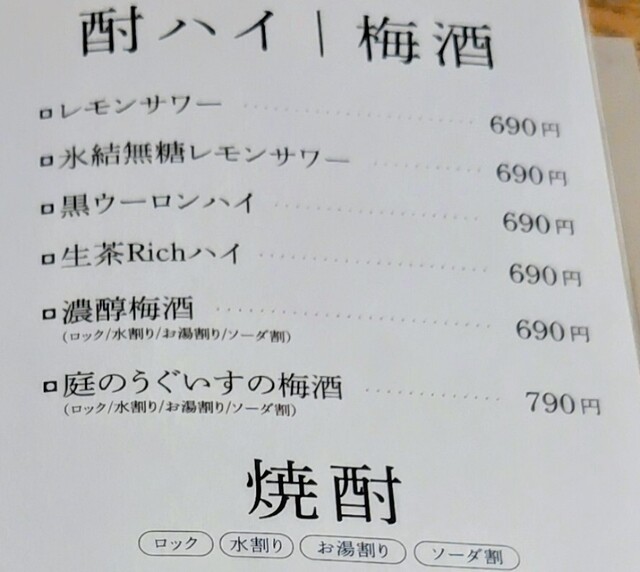 酎ハイ | 梅酒
レモンサワー 690円
氷結無糖レモンサワー 690円
黒ウーロンハイ 690円
生茶Richハイ 690円
濃醇梅酒 690円
(ロック/水割り/お湯割り/ソーダ割)
庭のうぐいすの梅酒 790円
(ロック/水割り/お湯割り/ソーダ割)
焼酎
ロック 水割り お湯割り ソーダ割